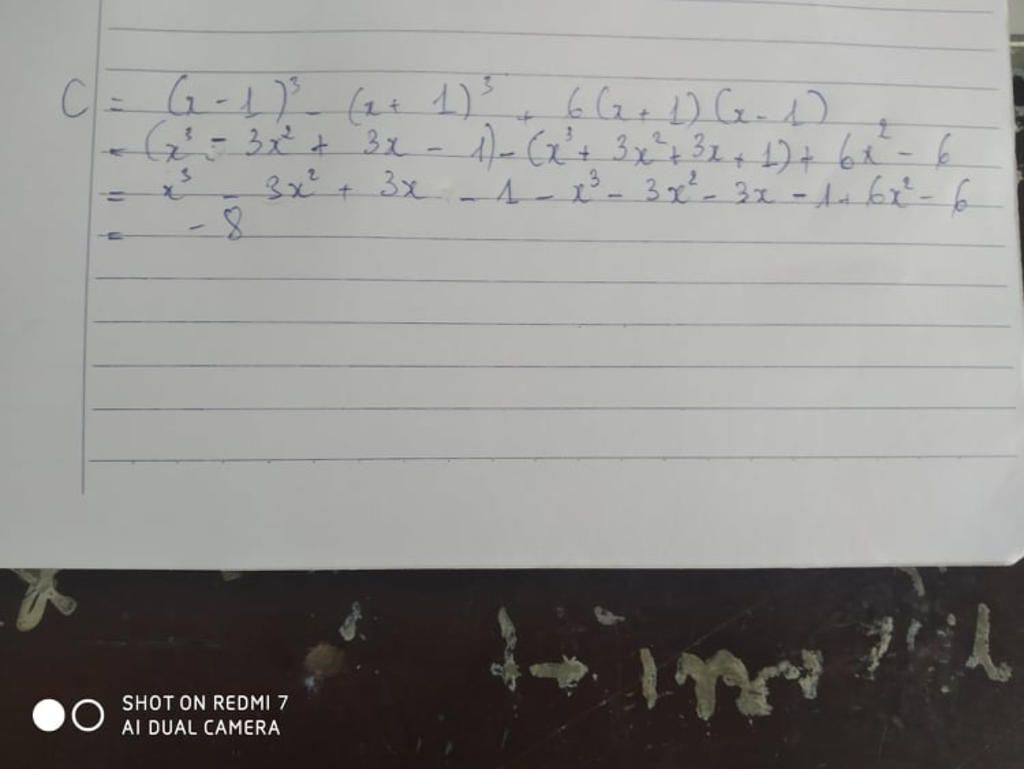 C = (x - 1)³ - (x + 1)³ + 6(x + 1)(x - 1)
= (x³ - 3x² + 3x - 1) - (x³ + 3x² + 3x + 1) + 6x² - 6
= x³ - 3x² + 3x - 1 - x³ - 3x² - 3x - 1 + 6x² - 6
= - 8
SHOT ON REDMI 7
AI DUAL CAMERA